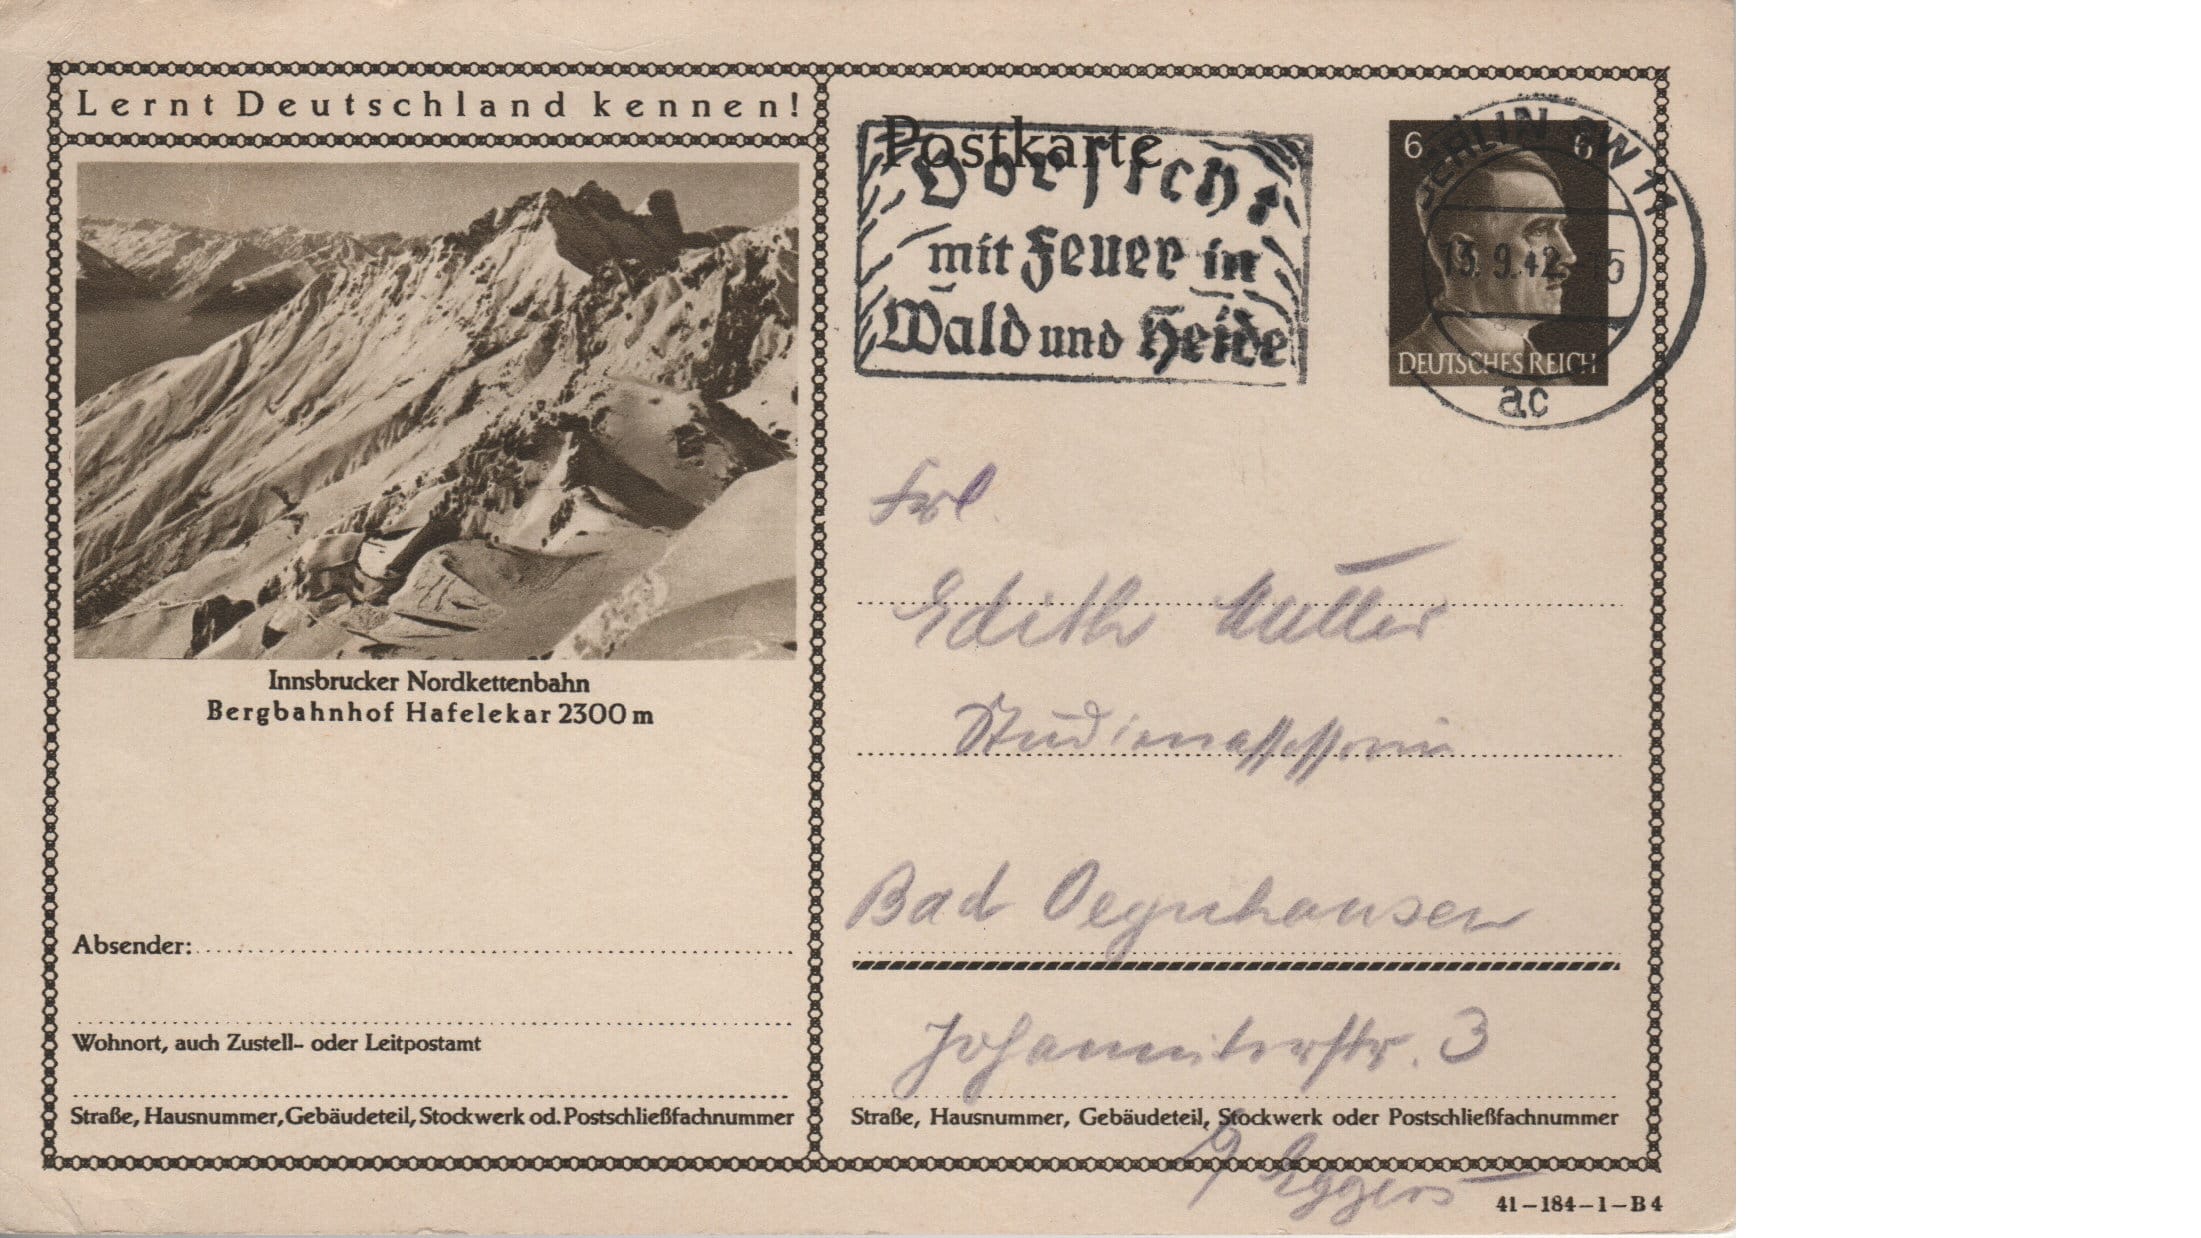 Lernt Deutschland kennen!
Innsbrucker Nordkettenbahn
Bergbahnhof Hafelekar 2300 m
Absender:
Wohnort, auch Zustell- oder Leitpostamt
Straße, Hausnummer, Gebäudeteil, Stockwerk od. Postschließfachnummer
Postkarte
Vorsicht
mit Feuer in
Wald und Heide
6 6
DEUTSCHES REICH
BERLIN SW 11
13.9.42
ac
Frl.
Edith Müller
Studienassessorin
Bad Oeynhausen
Johanniterstr. 3
Straße, Hausnummer, Gebäudeteil, Stockwerk oder Postschließfachnummer
Eggers
41-184-1-B 4